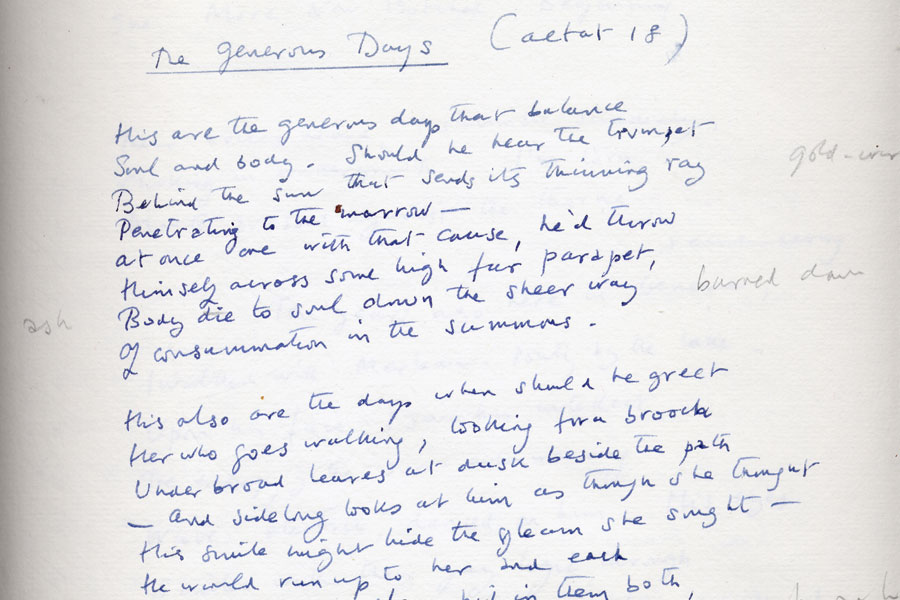 The Generous Days (aetat 18)
His are the generous days that balance
Soul and body. Should he hear the trumpet
gold-
Behind the sun that sends its thinning ray
Penetrating to the marrow —
at once one with that cause, he'd throw
Himself across some high far parapet,
burned down
Body die to soul down the sheer way
ash
Of consummation in the summons.
His also are the days when should he greet
Her who goes walking, looking for a brooch
Under broad leaves at dusk beside the path
— And sidelong looks at him as though she thought
His smile might hide the gleam she sought —
He would run up to her and each
in them both,